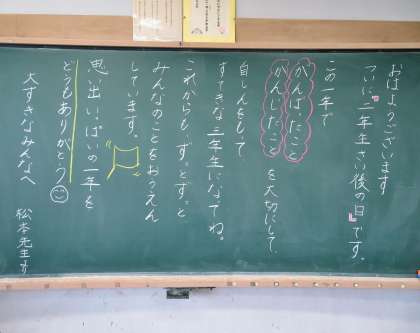 おはようございます
ついに二年生さい後の日です。
この一年で
がんばったこと
かんじたこと を大切にして、
自しんをもって
すてきな三年生になってね。
これからも、ずっとずっと
みんなのことをおうえん
しています。
思い出いっぱいの一年を
どうもありがとう
大すきなみんなへ
松本先生より